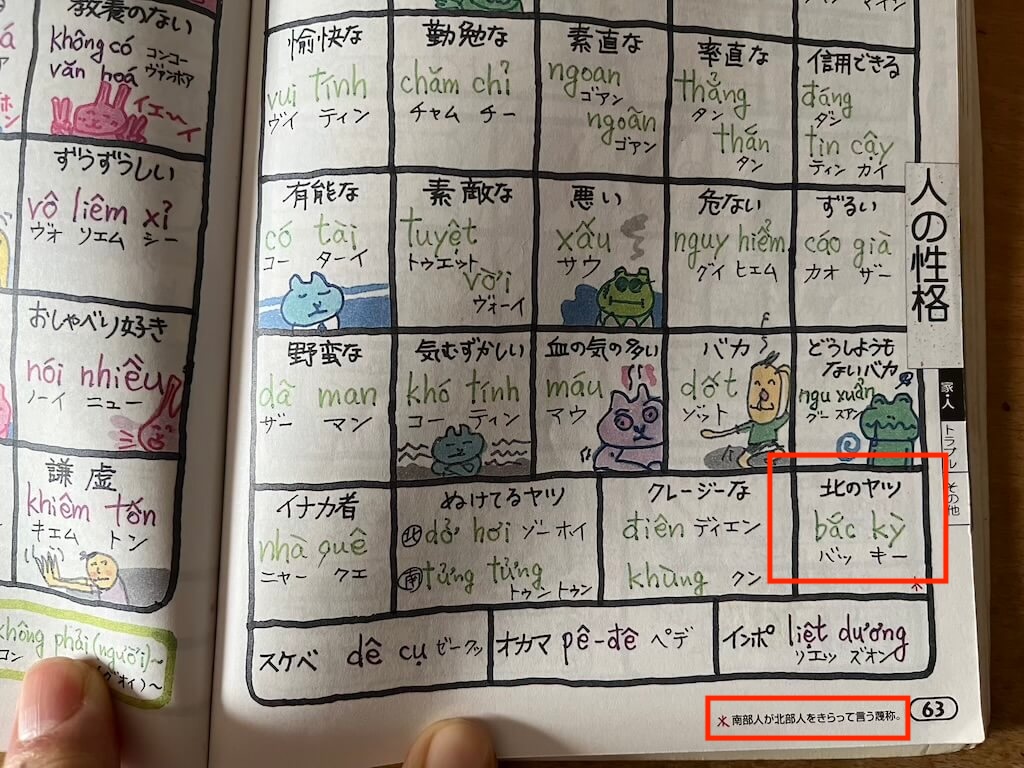 教養のない
không có コンコー
văn hoá ヴァンホア
イエ〜イ
ずうずうしい
vô liêm xỉ
ヴォ リエム シー
おしゃべり好き
nói nhiều
ノーイ ニュー
謙虚
khiêm tốn
キエム トン
không phải (người)〜
愉快な
vui tính
ヴイ ティン
勤勉な
chăm chỉ
チャム チー
素直な
ngoan
ゴアン
ngoãn
ゴアン
率直な
thẳng
タン
thắn
タン
信用できる
đáng
ダン
tin cậy
ティン カイ
有能な
có tài
コー ターイ
素敵な
tuyệt
トゥエット
vời
ヴォーイ
悪い
xấu
サウ
危ない
nguy hiểm
グイ ヒエム
ずるい
cáo già
カオ ザー
野蛮な
dã man
ザー マン
気むずかしい
khó tính
コー ティン
血の気の多い
máu
マウ
バカ
dốt
ゾット
どうしようも
ないバカ
ngu xuẩn
グー スアン
イナカ者
nhà quê
ニャー クエ
ぬけてるヤツ
北 dở hơi ゾー ホイ
南 tửng tửng
トゥン トゥン
クレージーな
điên ディエン
khùng クン
北のヤツ
bắc kỳ
バッ キー
*
スケベ dê cụ ゼークッ
オカマ pê-đê ペデ
インポ liệt dương
リエッ ズオン
人の性格
家・人
トラブル
その他
*南部人が北部人をきらって言う蔑称。
63